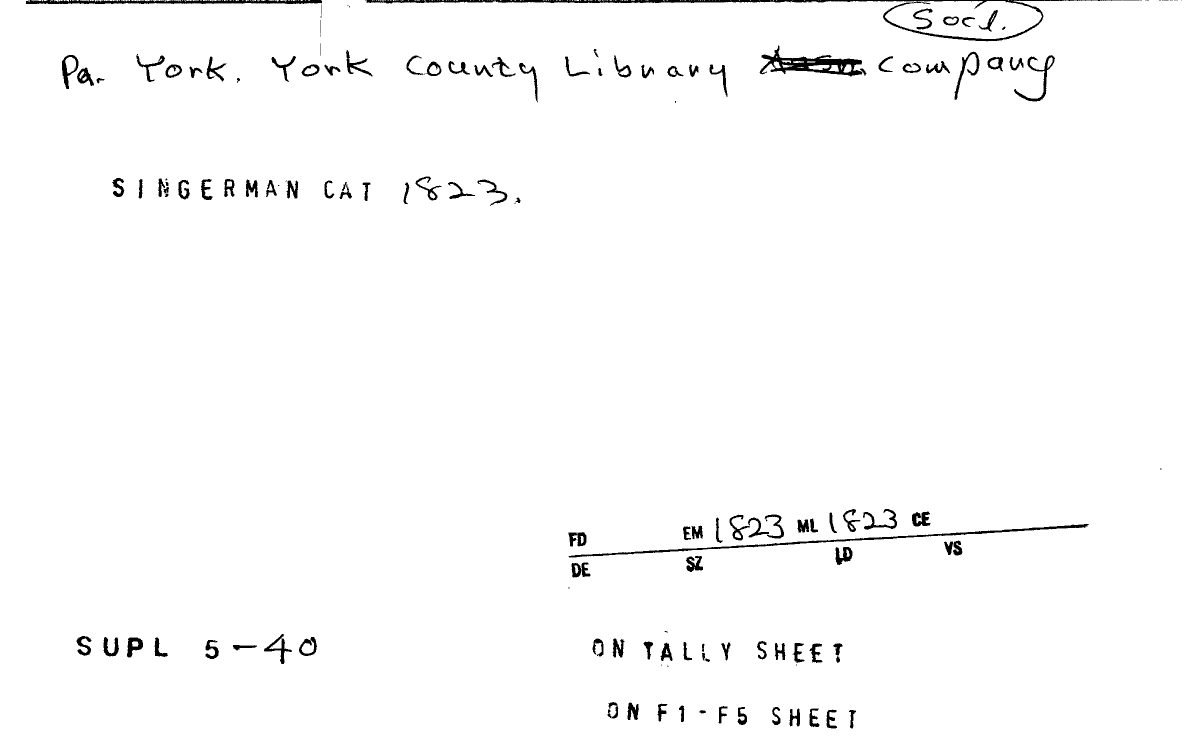 Socl.
Pa. York. York County Library Assn. Company
SINGERMAN CAT 1823.
FD EM 1823 ML 1823 CE
DE SZ LD VS
SUPL 5-40 ON TALLY SHEET
ON F1-F5 SHEET